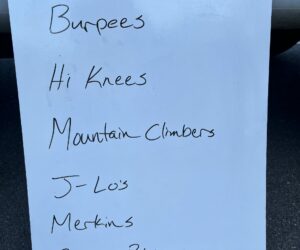 Burpees
Hi Knees
Mountain Climbers
J-Lo's
Merkins